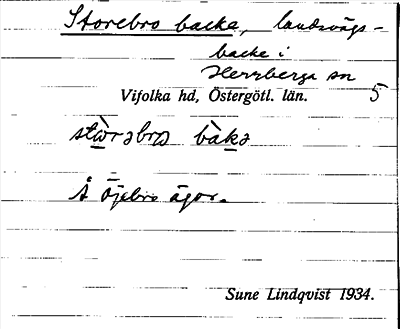 Storebro backe, landsvägs-
backe i
Herrberga sn
Vifolka hd, Östergötl. län. 5
stòrəbro bàkə
Å Öjebro ägor.
Sune Lindqvist 1934.